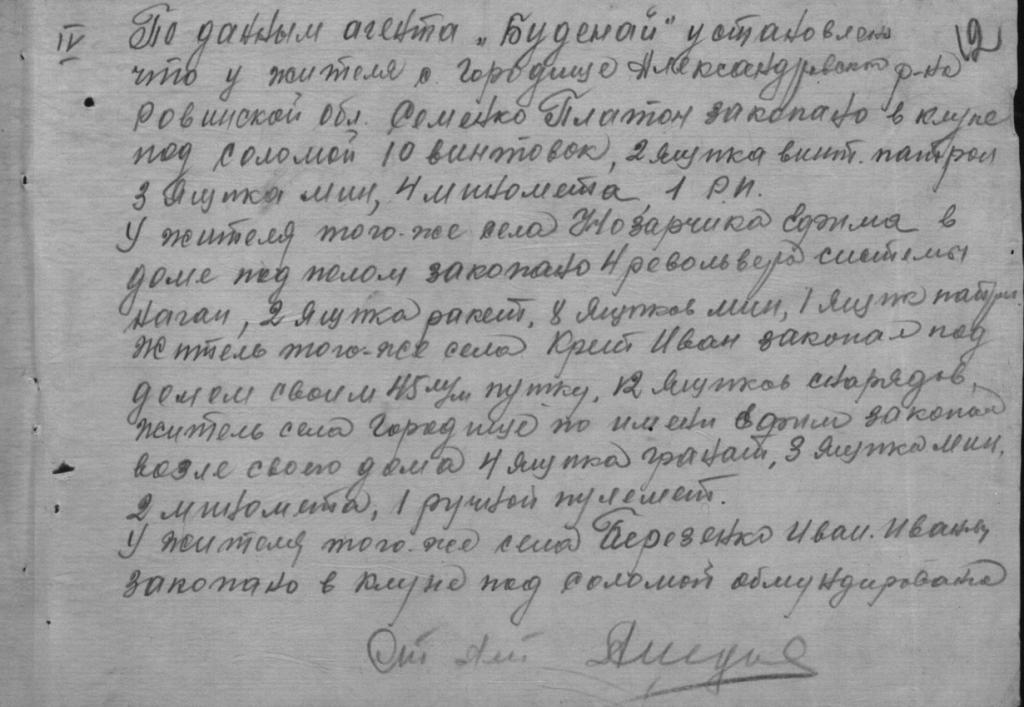 IV По данным агента „Буденай" установлено 12
что у жителя с. Городище Александровского р-на
Ровинской обл. Семенко Платон закопано в клуне
под соломой 10 винтовок, 2 ящика винт. патрон
3 ящика мин, 4 миномета 1 Р.П.
У жителя того-же села Козарчика Ефима в
доме под полом закопано 4 револьвера системы
Наган, 2 ящика ракет, 8 ящиков мин, 1 ящик патрон.
Житель того-же села Крет Иван закопал под
домом своим 45 м/м пушку, 12 ящиков снарядов,
житель села Городище по имени Ефим закопал
возле своего дома 4 ящика гранат, 3 ящика мин,
2 миномета, 1 ручной пулемет.
У жителя того-же села Березенко Иван. Иваны
закопано в клуне под соломой обмундирование